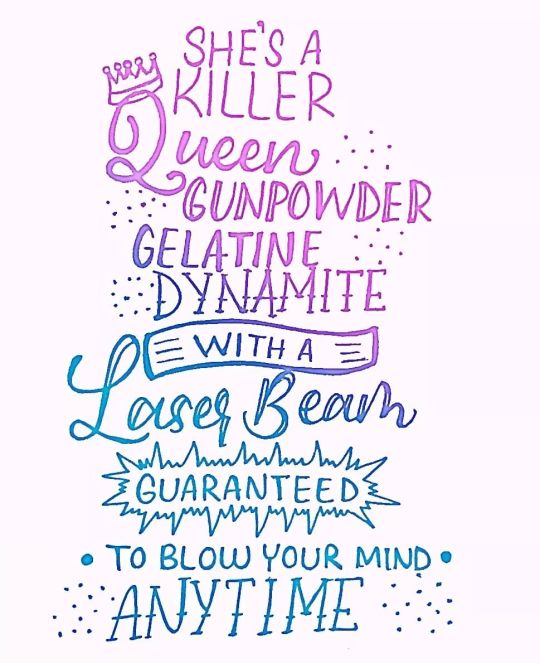 SHE'S A
KILLER
Queen
GUNPOWDER
GELATINE
DYNAMITE
WITH A
Laser Beam
GUARANTEED
• TO BLOW YOUR MIND •
ANYTIME